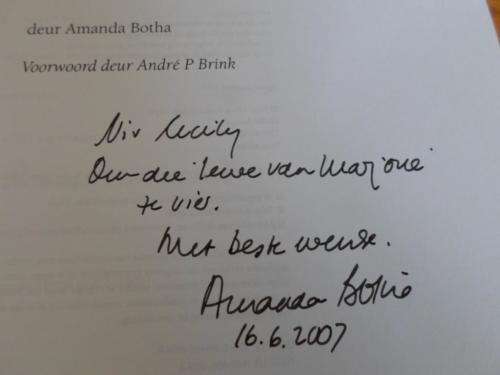 deur Amanda Botha
Voorwoord deur André P Brink
Vir Cecily
Om die lewe van Marjorie
te vier.
Met beste wense.
Amanda Botha
16.6.2007